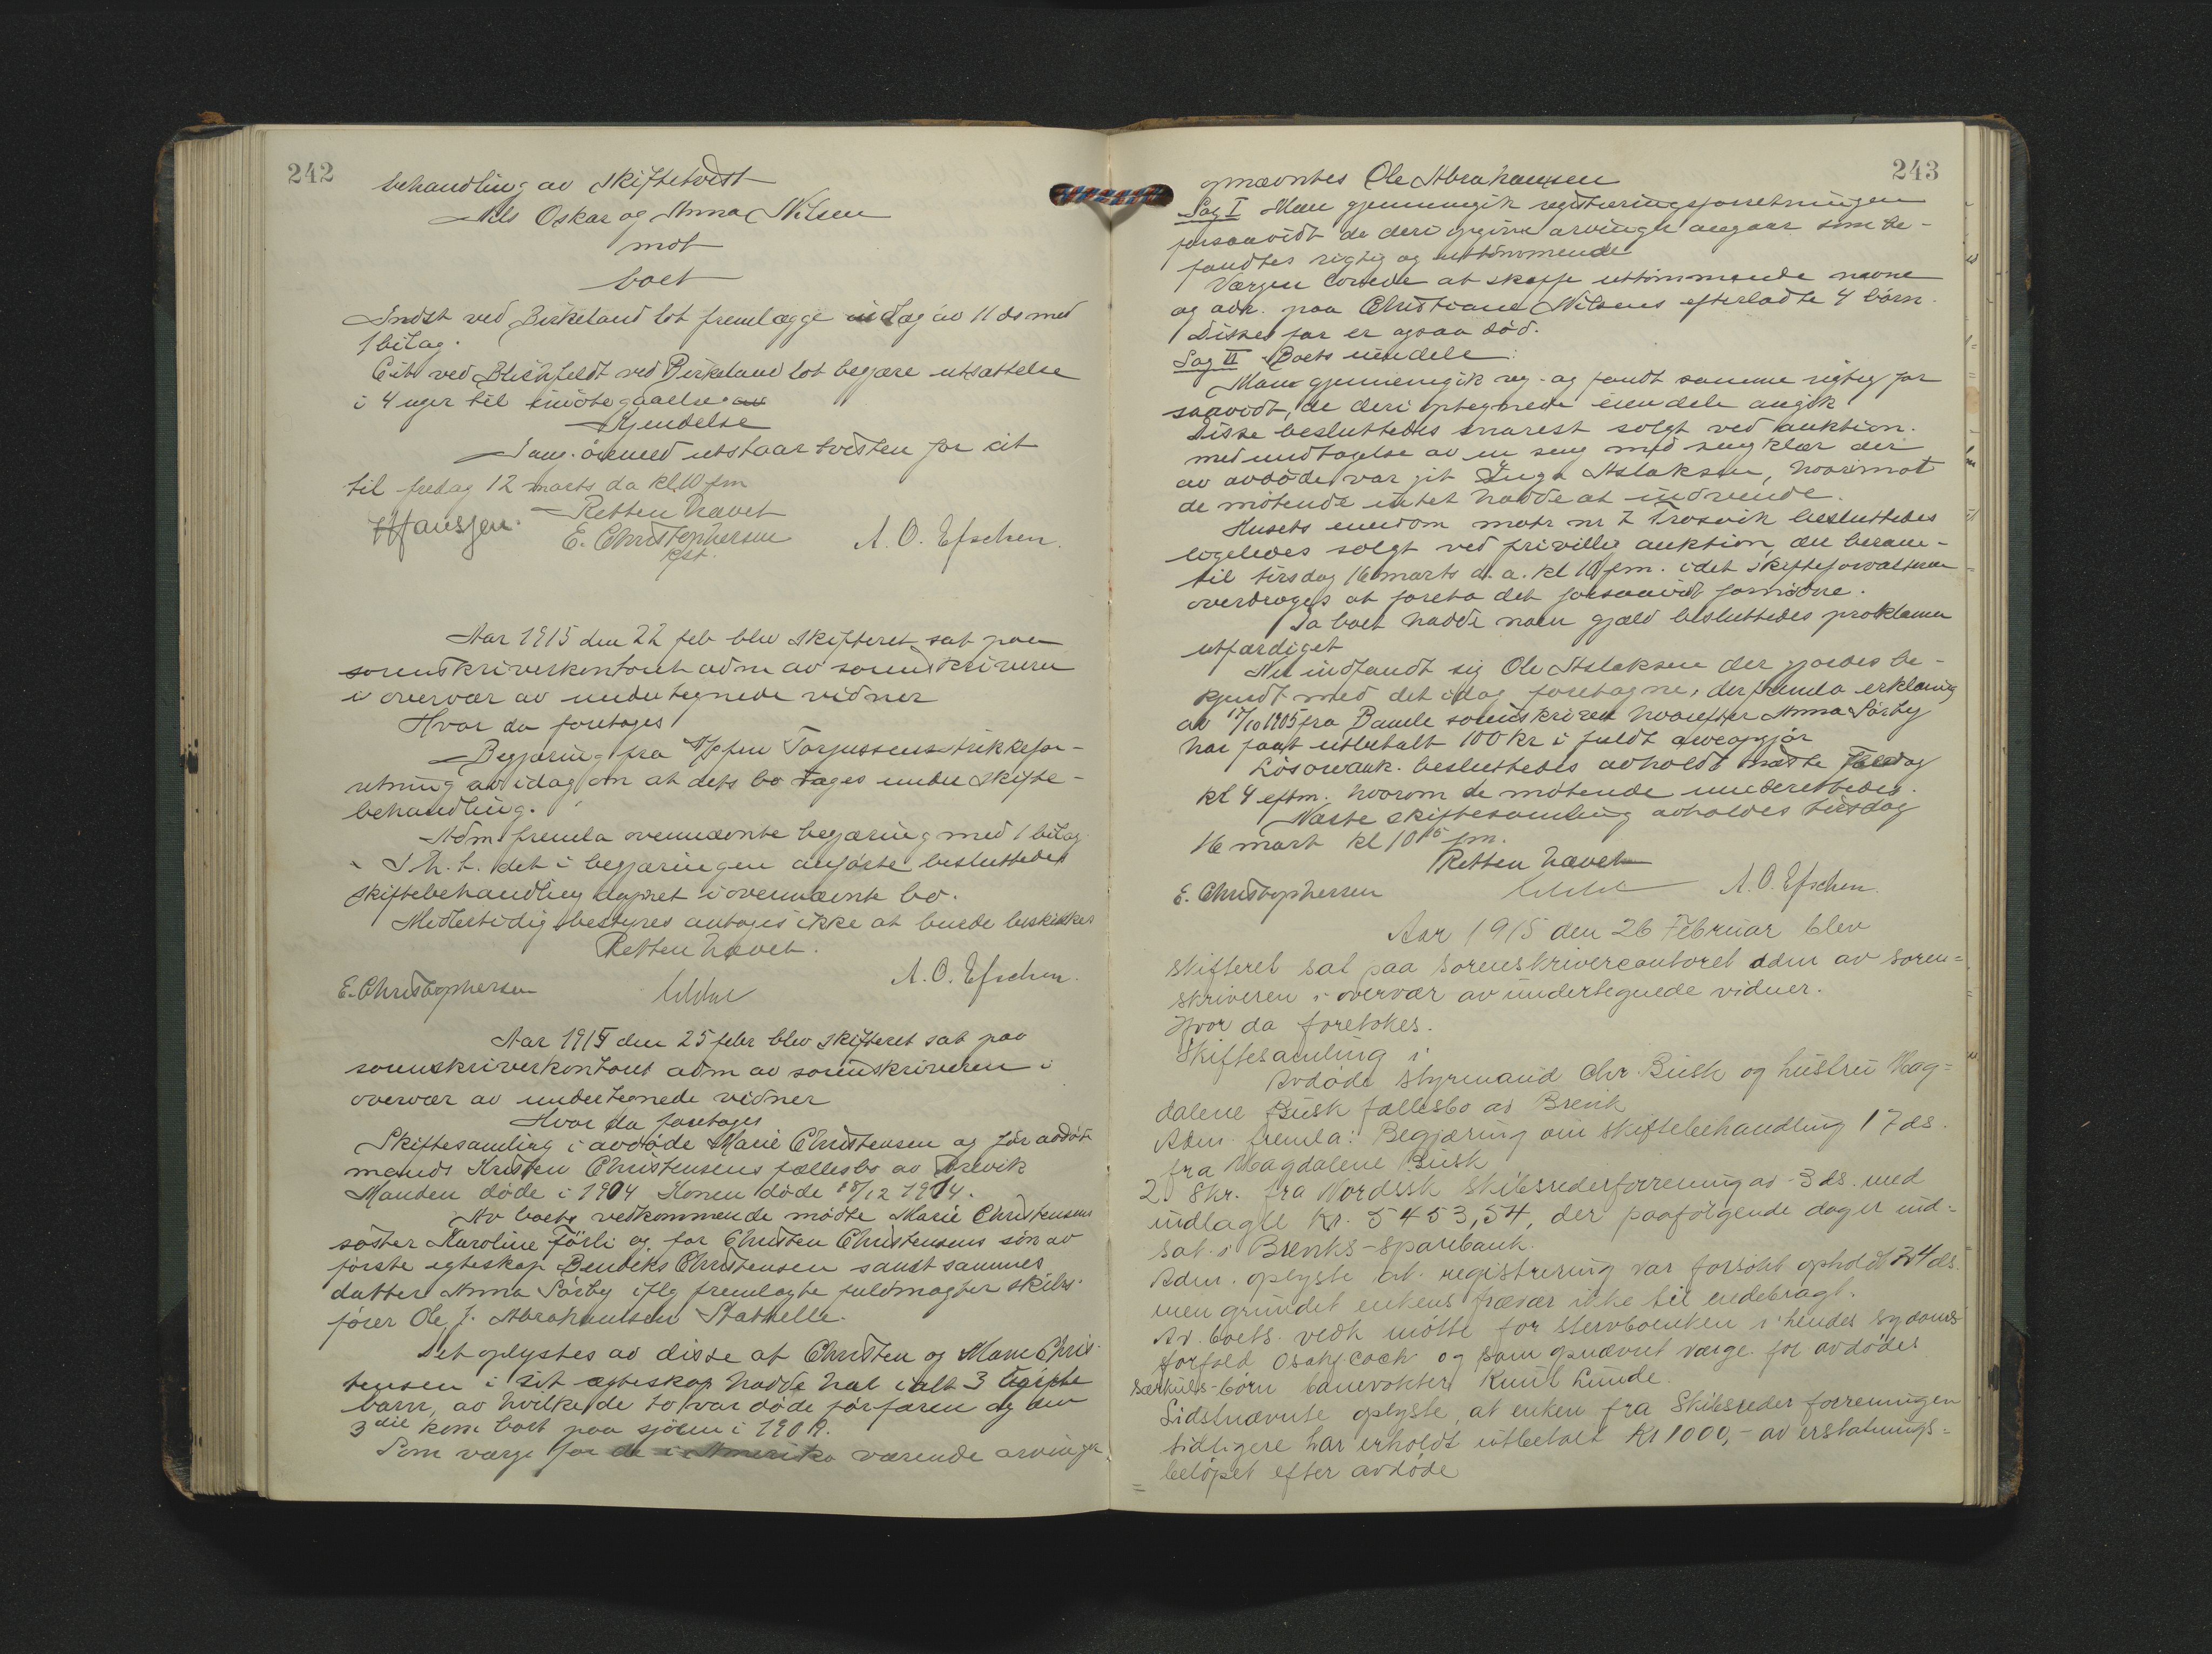 242
behandling av skiftetvist
Nils Oskar og Anna Nilsen
mot
boet
Indst ved Birkeland lot fremlægge indlæg av 11 ds med
1 bilag.
Cit ved Blichfeldt ved Birkeland lot begjære utsættelse
i 4 uger til imøtegaaelse av
Kjendelse
utstaar tvisten for cit
til fredag 12 marts da kl 10 fm
Retten hævet
E. Christophersen A. O. Efschen.
Aar 1915 den 22 feb blev skifteret sat paa
sorenskriverkontoret adm av sorenskriveren
i overvær av undertegnede vidner
Hvor da foretages
Begjæring fra Torjussens trikkefor-
retning av idag om at dets bo tages under skifte-
behandling.
Adm fremla ovennævnte begjæring med 1 bilag
I h. t. det i begjæringen anførte besluttedes
skiftebehandling aapnet i ovennævnte bo.
Midlertidig bestyrer antages ikke at burde beskikkes
Retten hævet.
E. Christophersen A. O. Efschen.
Aar 1915 den 25 febr blev skifteret sat paa
sorenskriverkontoret adm av sorenskriveren i
overvær av undertegnede vidner
Hvor da foretages
Skiftesamling i avdøde Marie Christensen og før avdøde
mands Kristen Christensens fællesbo av Brevik
Manden døde i 1904 Konen døde 18/12 1914.
Av boets vedkommende mødte Marie Christensens
søster Karoline Førli og for Christen Christensens søn av
første egteskap Bendiks Christensen samt sammes
datter Anna Sørby iflg fremlagte fuldmagter skibs-
fører Ole J. Abrahamsen Stathelle.
Det oplystes av disse at Christen og Marie Chris-
tensen i sit egteskap hadde hat ialt 3
barn, av hvilke de to var døde før faren og den
3die kom bort paa sjøen i 190
Som værge for de i Amerika værende arvinger
243
opnævntes Ole Abrahamsen
Sag I Man gjennemgik registreringsforretningen
forsaavidt de deri opgivne arvinger angaar som be-
fandtes rigtig og uttømmende
Værgen lovede at skaffe uttømmende navne
og adr. paa Christiane Nilsens efterladte 4 børn.
Disses far er ogsaa død.
Sag II Boets eiendele:
Man gjennemgik reg. og fandt samme rigtig for
saavidt, de deri optegnede eiendele angik
Disse besluttedes snarest solgt ved auktion.
med undtagelse av en seng med sengklær der
av avdøde var git Inga Aslaksen, hvorimot
de møtende intet hadde at indvende.
Husets eiendom matr nr 7 Trosvik besluttedes
ligeledes solgt ved frivillig auktion, der beram-
til tirsdag 16 marts d. a. kl 10 fm. idet skifteforvalteren
overdroges at foreta det forsaavidt fornødne.
Da boet hadde noen gjæld besluttedes proklama
utfærdiget
Nu indfandt sig Ole Aslaksen der gjordes be-
kjendt med det idag foretagne, der fremla erklæring
av 17/10 1905 fra Bamle sorenskriveri hvorefter Anna Sørby
har faat utbetalt 100 kr i fuldt arveopgjør
Løsøreauk. besluttedes avholdt næste
kl 4 eftm. hvorom de møtende underettedes.
Næste skiftesamling avholdes tirsdag
16 mart kl 10 15 fm.
Retten hævet
E. Christophersen A. O. Efschen.
Aar 1915 den 26 Februar blev
skifteret sat paa sorenskrivercontoret adm av soren=
skriveren i overvær av undertegnede vidner.
Hvor da foretokes.
Skiftesamling i
Avdøde styrmand Chr. Busk og hustru Mag=
dalene Busk fællesbo av Brevik
Adm. fremla: Begjæring om skiftebehandling 17 ds.
fra Magdalene Busk
2) Skr. fra Nordisk Skibsrederforening av 3 ds. med
indlagte Kr. 5453,54, der paafølgende dager ind=
sat i Breviks-sparebank.
Adm. oplyste at registrering var forsøkt opholdt 24 ds.
men grundet enkens fravær ikke til endebragt.
Av. boets. vedk møtte for stervboenken i hendes sygdoms
forfald og som opnævnt værge for avdødes
særkuls-børn banevokter Knut Lunde.
Sidstnævnte oplyste, at enken fra Skibsreder foreningen
tidligere har erholdt utbetalt Kr 1000,- av erstatnings=
beløpet efter avdøde